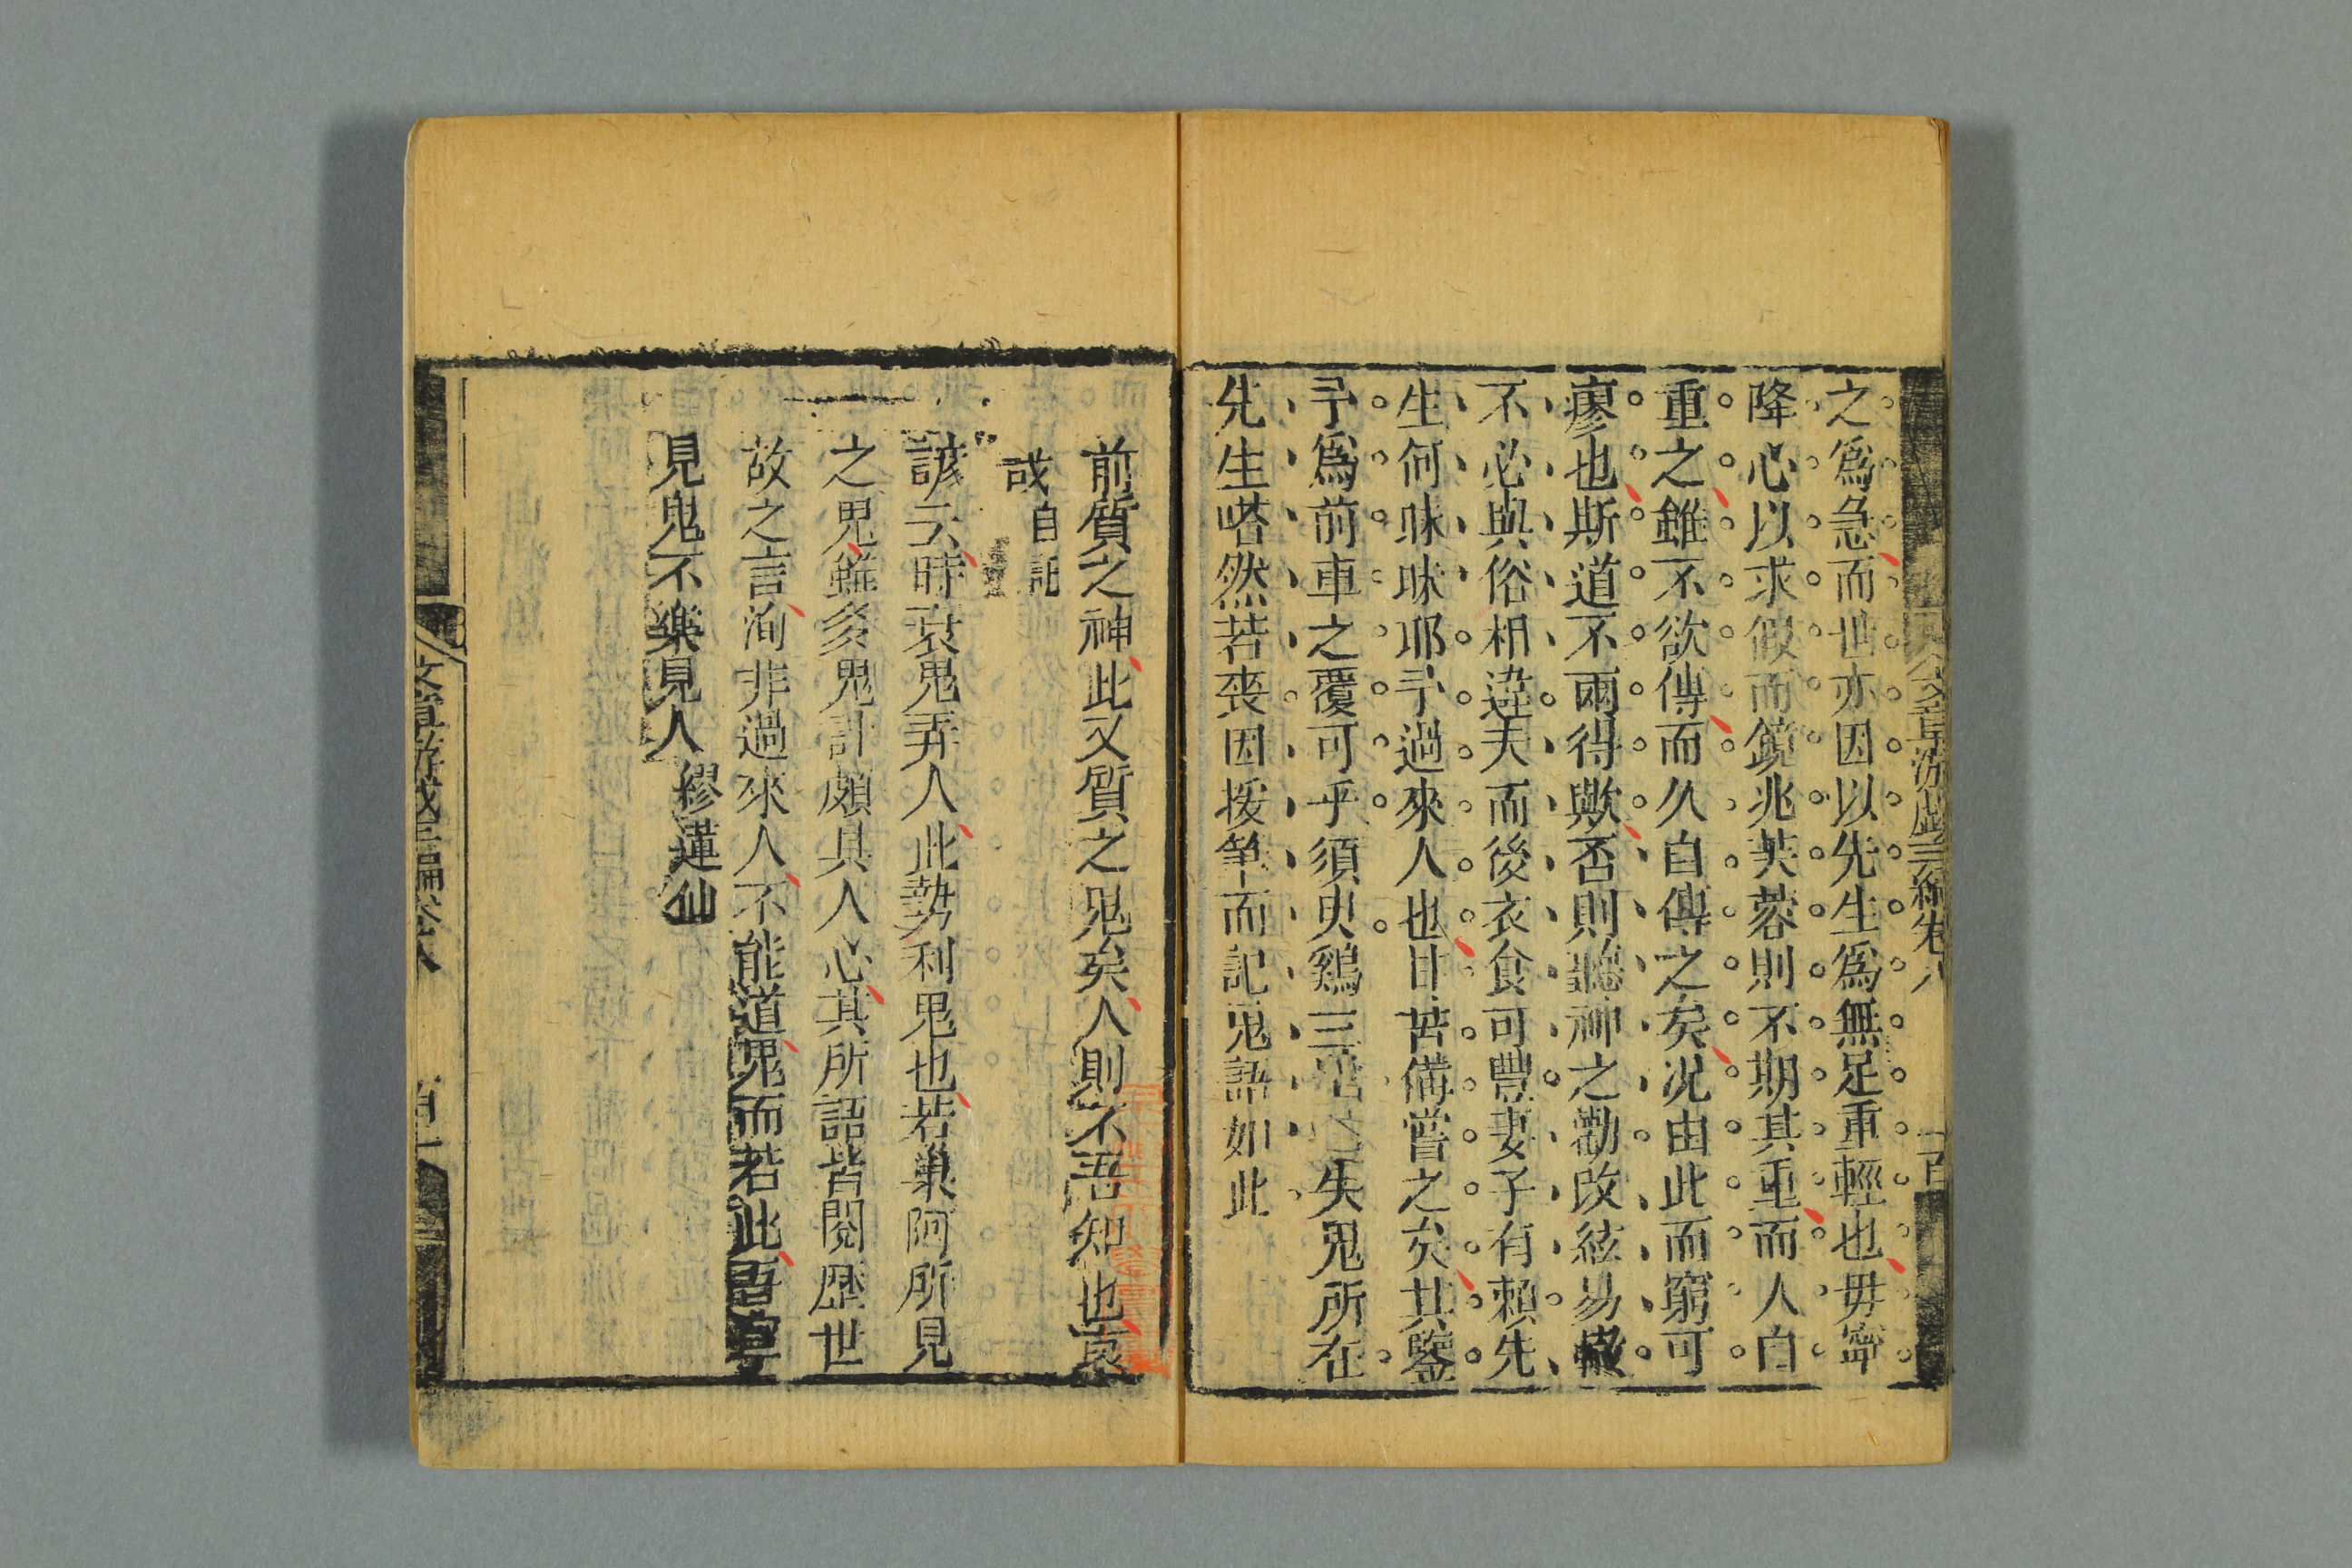 之爲急而世亦因以先生爲無足重輕也毋寧
降心以求假而鏡兆芙蓉則不期其重而人自
重之雖不欲傳而久自傳之矣况由此而窮可
瘳也斯道不兩得歟否則聽神之勸改絃易轍
不必與俗相違夫而後衣食可豐妻子有賴先
生何昧昧耶予過來人也甘苦備嘗之矣其鑒
予爲前車之覆可乎須臾鷄三失鬼所在
先生嗒然若喪因援筆而記鬼語如此
前質之神此又質之鬼矣人則不吾知也哀
或自註
諺云時衰鬼弄人此勢利鬼也若巢阿所見
之鬼雖爲鬼計頗具人心其所語皆閱歷世
故之言洵非過來人不能道鬼而若此吾寧
見鬼不樂見人 繆蓮仙
文章游戲三編卷八